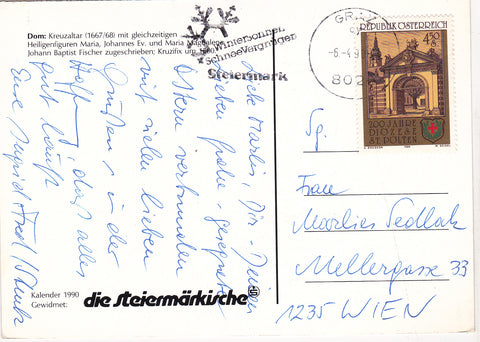 Dom: Kreuzaltar (1667/68) mit gleichzeitigen
Heiligenfiguren Maria, Johannes Ev. und Maria Magdalena,
Johann Baptist Fischer zugeschrieben; Kruzifix um
Wintersonnen
SchneeVergnügen
Steiermark
GRAZ
-6.-4.9
802
REPUBLIK ÖSTERREICH
S 4.50
200 JAHRE
DIÖZESE
ST. PÖLTEN
Liebe Marlies, Dir + Deinen
Lieben frohe, gesegnete
Ostern verbunden
mit vielen lieben
Grüßen in der
Hoffnung, daß alles
gut läuft
Eure
Frau
Marlies Sedlak
Mellergasse 33
1235 WIEN
Kalender 1990
Gewidmet:
die steiermärkische